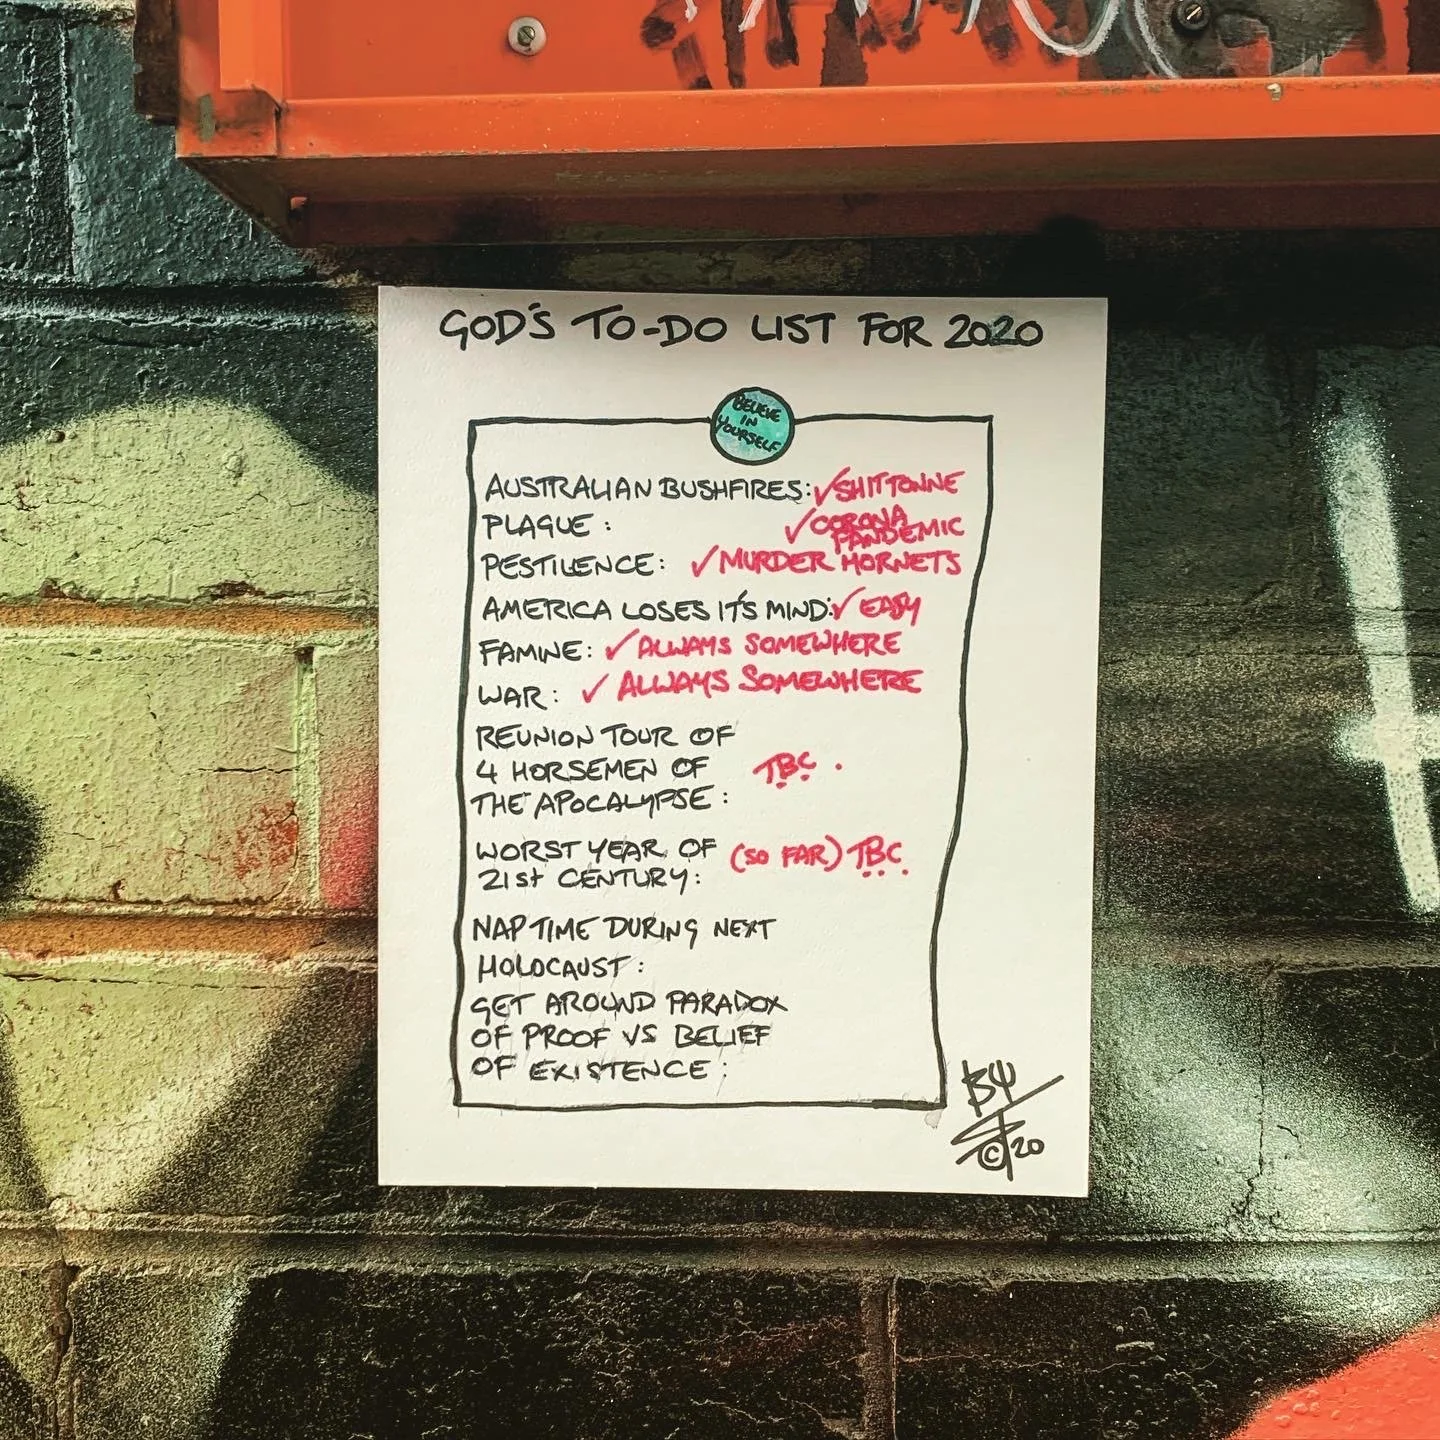 GOD'S TO-DO LIST FOR 2020
BELIEVE
IN
YOURSELF
AUSTRALIAN BUSHFIRES: ✓SHITTONNE
PLAGUE: ✓CORONA
PANDEMIC
PESTILENCE: ✓MURDER HORNETS
AMERICA LOSES IT'S MIND:✓ EASY
FAMINE: ✓ALWAYS SOMEWHERE
WAR: ✓ ALWAYS SOMEWHERE
REUNION TOUR OF
4 HORSEMEN OF TBC.
THE APOCALYPSE:
WORST YEAR OF (SO FAR) TBC.
21st CENTURY:
NAP TIME DURING NEXT
HOLOCAUST:
GET AROUND PARADOX
OF PROOF VS BELIEF
OF EXISTENCE:
© 20